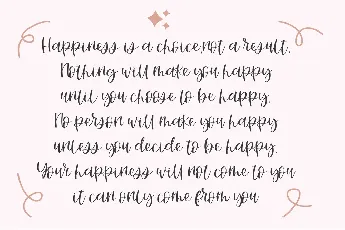 Happiness is a choice not a result.
Nothing will make you happy
until you choose to be happy.
No person will make you happy
unless you decide to be happy.
Your happiness will not come to you
it can only come from you